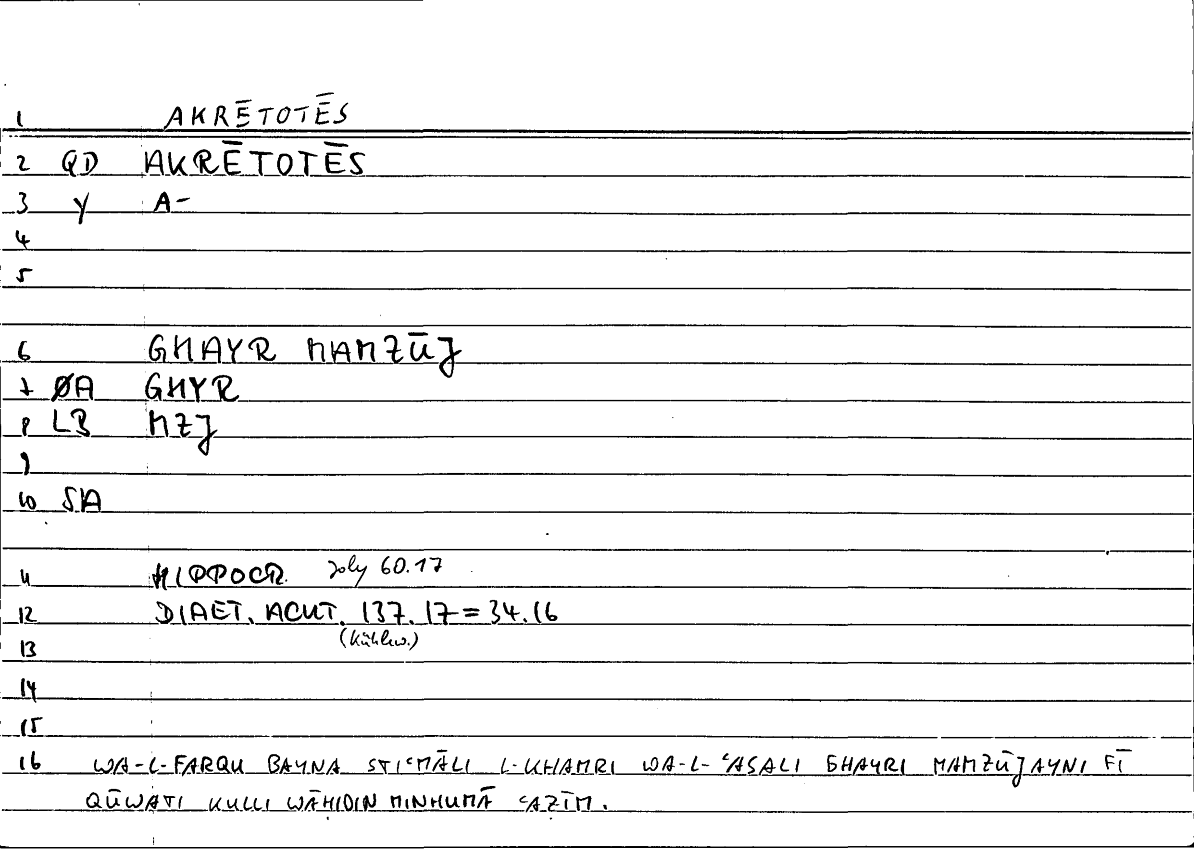 1 AKRĒTOTĒS
2 QD AKRĒTOTĒS
3 Y A-
4
5
6 GHAYR MAMZŪJ
7 ØA GHYR
8 LB MZJ
9
10 SA
11 HIPPOCR. Joly 60.17
12 DIAET. ACUT. 137.17=34.16
(Kühlew.)
13
14
15
16 WA-L-FARQU BAYNA STIʿMĀLI L-KHAMRI WA-L-ʿASALI GHAYRI MAMZŪJAYNI FĪ
QŪWATI KULLI WĀḤIDIN MINHUMĀ ʿAẒĪM.